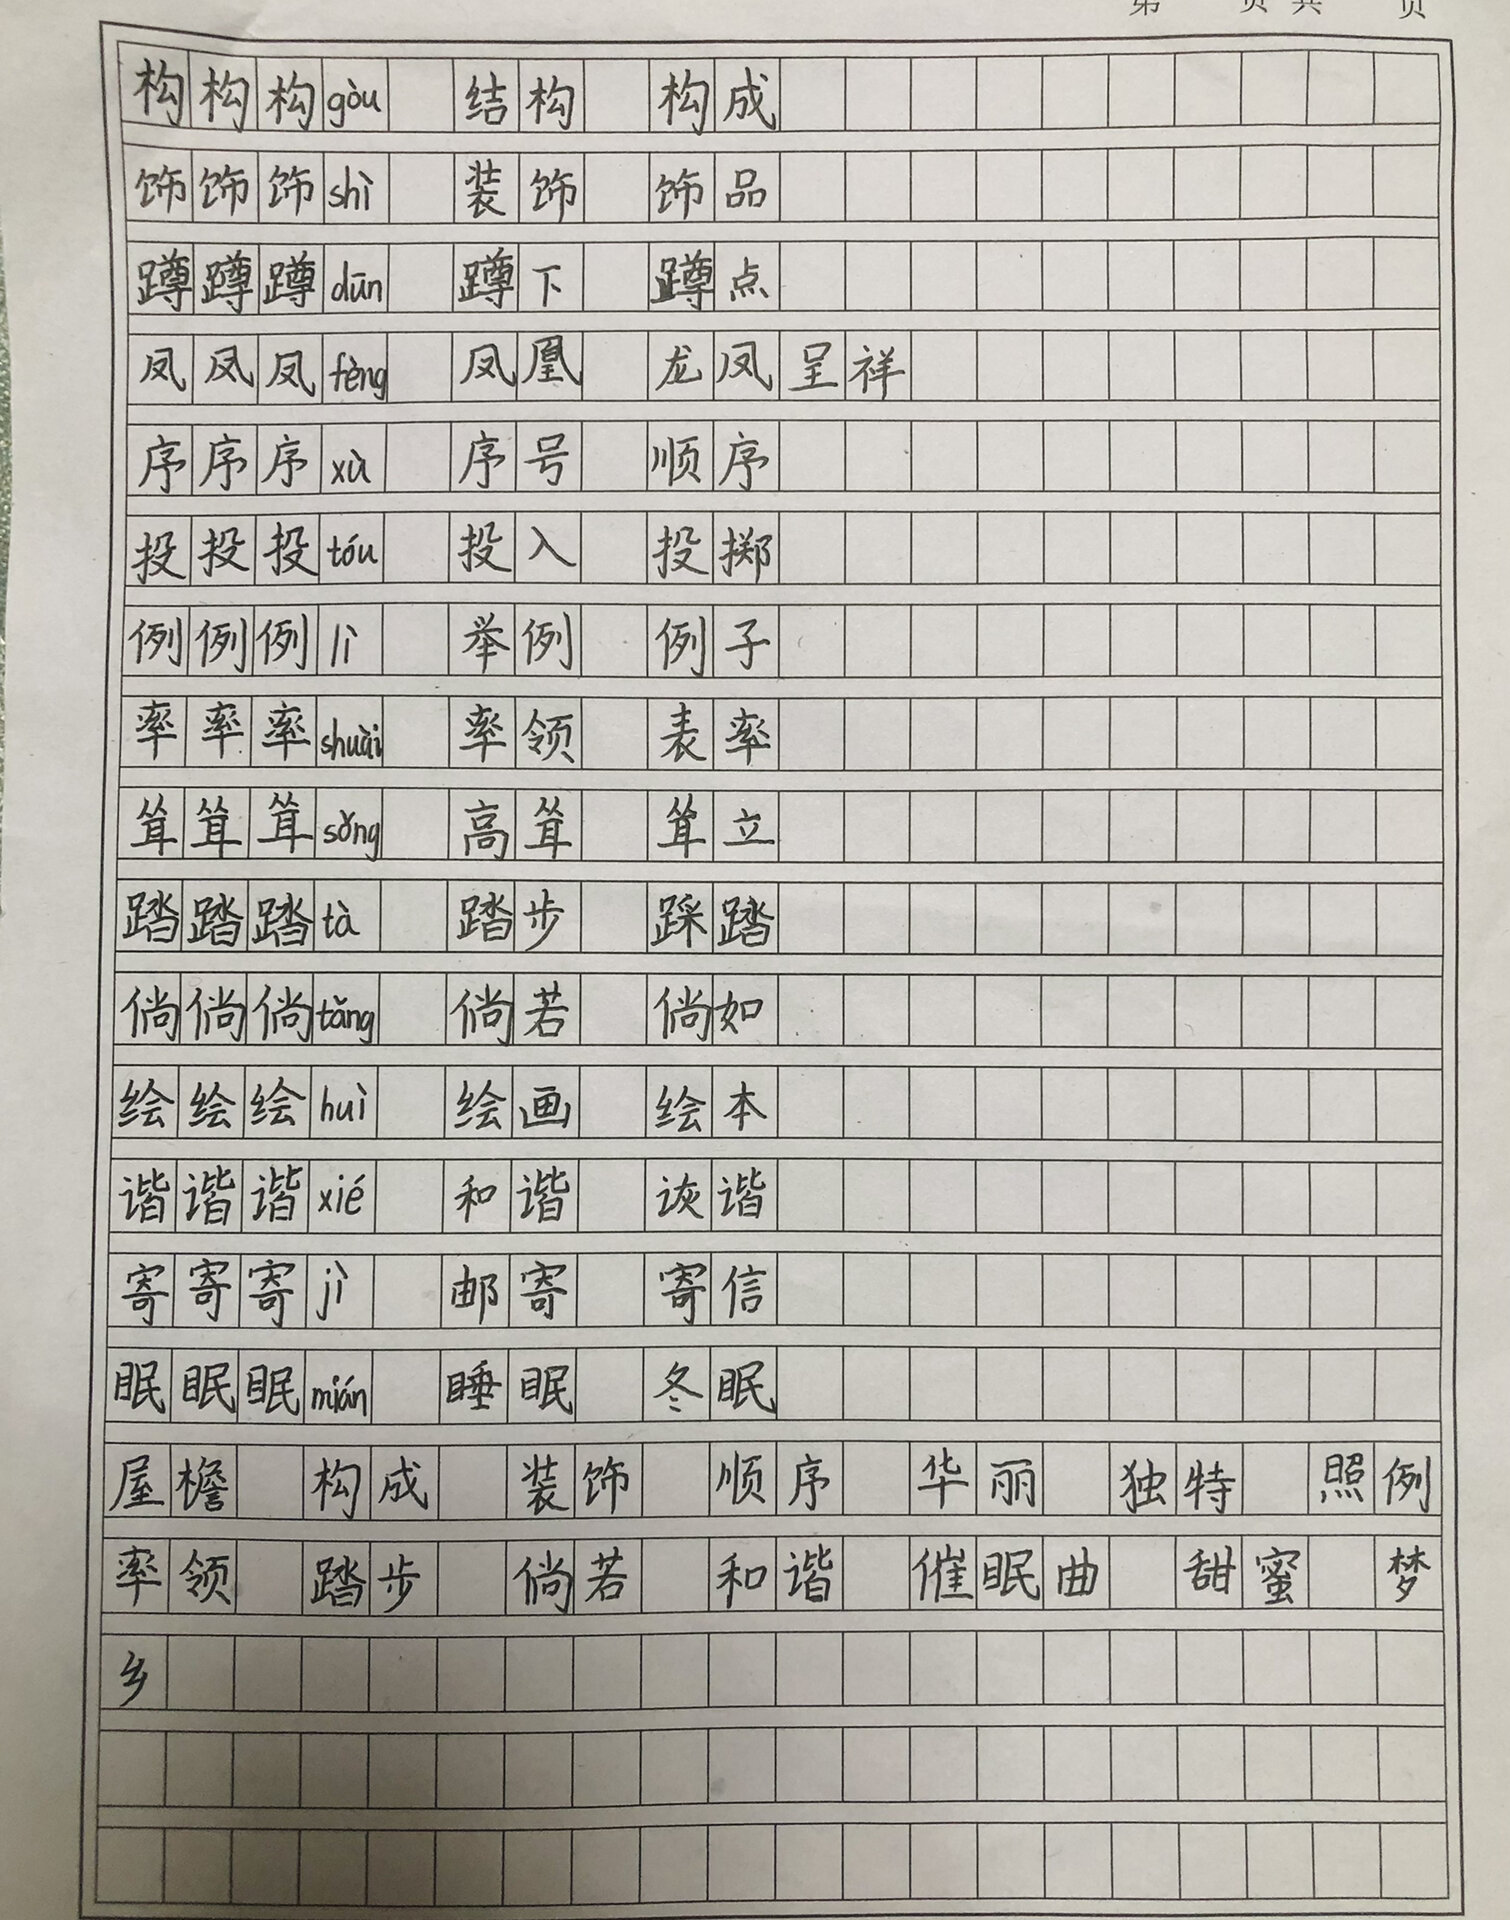 第 页 共 页
构构构gòu 结构 构成
饰饰饰shì 装饰 饰品
蹲蹲蹲dūn 蹲下 蹲点
凤凤凤fèng 凤凰 龙凤呈祥
序序序xù 序号 顺序
投投投tóu 投入 投掷
例例例lì 举例 例子
率率率shuài 率领 表率
耸耸耸sǒng 高耸 耸立
踏踏踏tà 踏步 踩踏
倘倘倘tǎng 倘若 倘如
绘绘绘huì 绘画 绘本
谐谐谐xié 和谐 诙谐
寄寄寄jì 邮寄 寄信
眠眠眠mián 睡眠 冬眠
屋檐 构成 装饰 顺序 华丽 独特 照例
率领 踏步 倘若 和谐 催眠曲 甜蜜 梦
乡